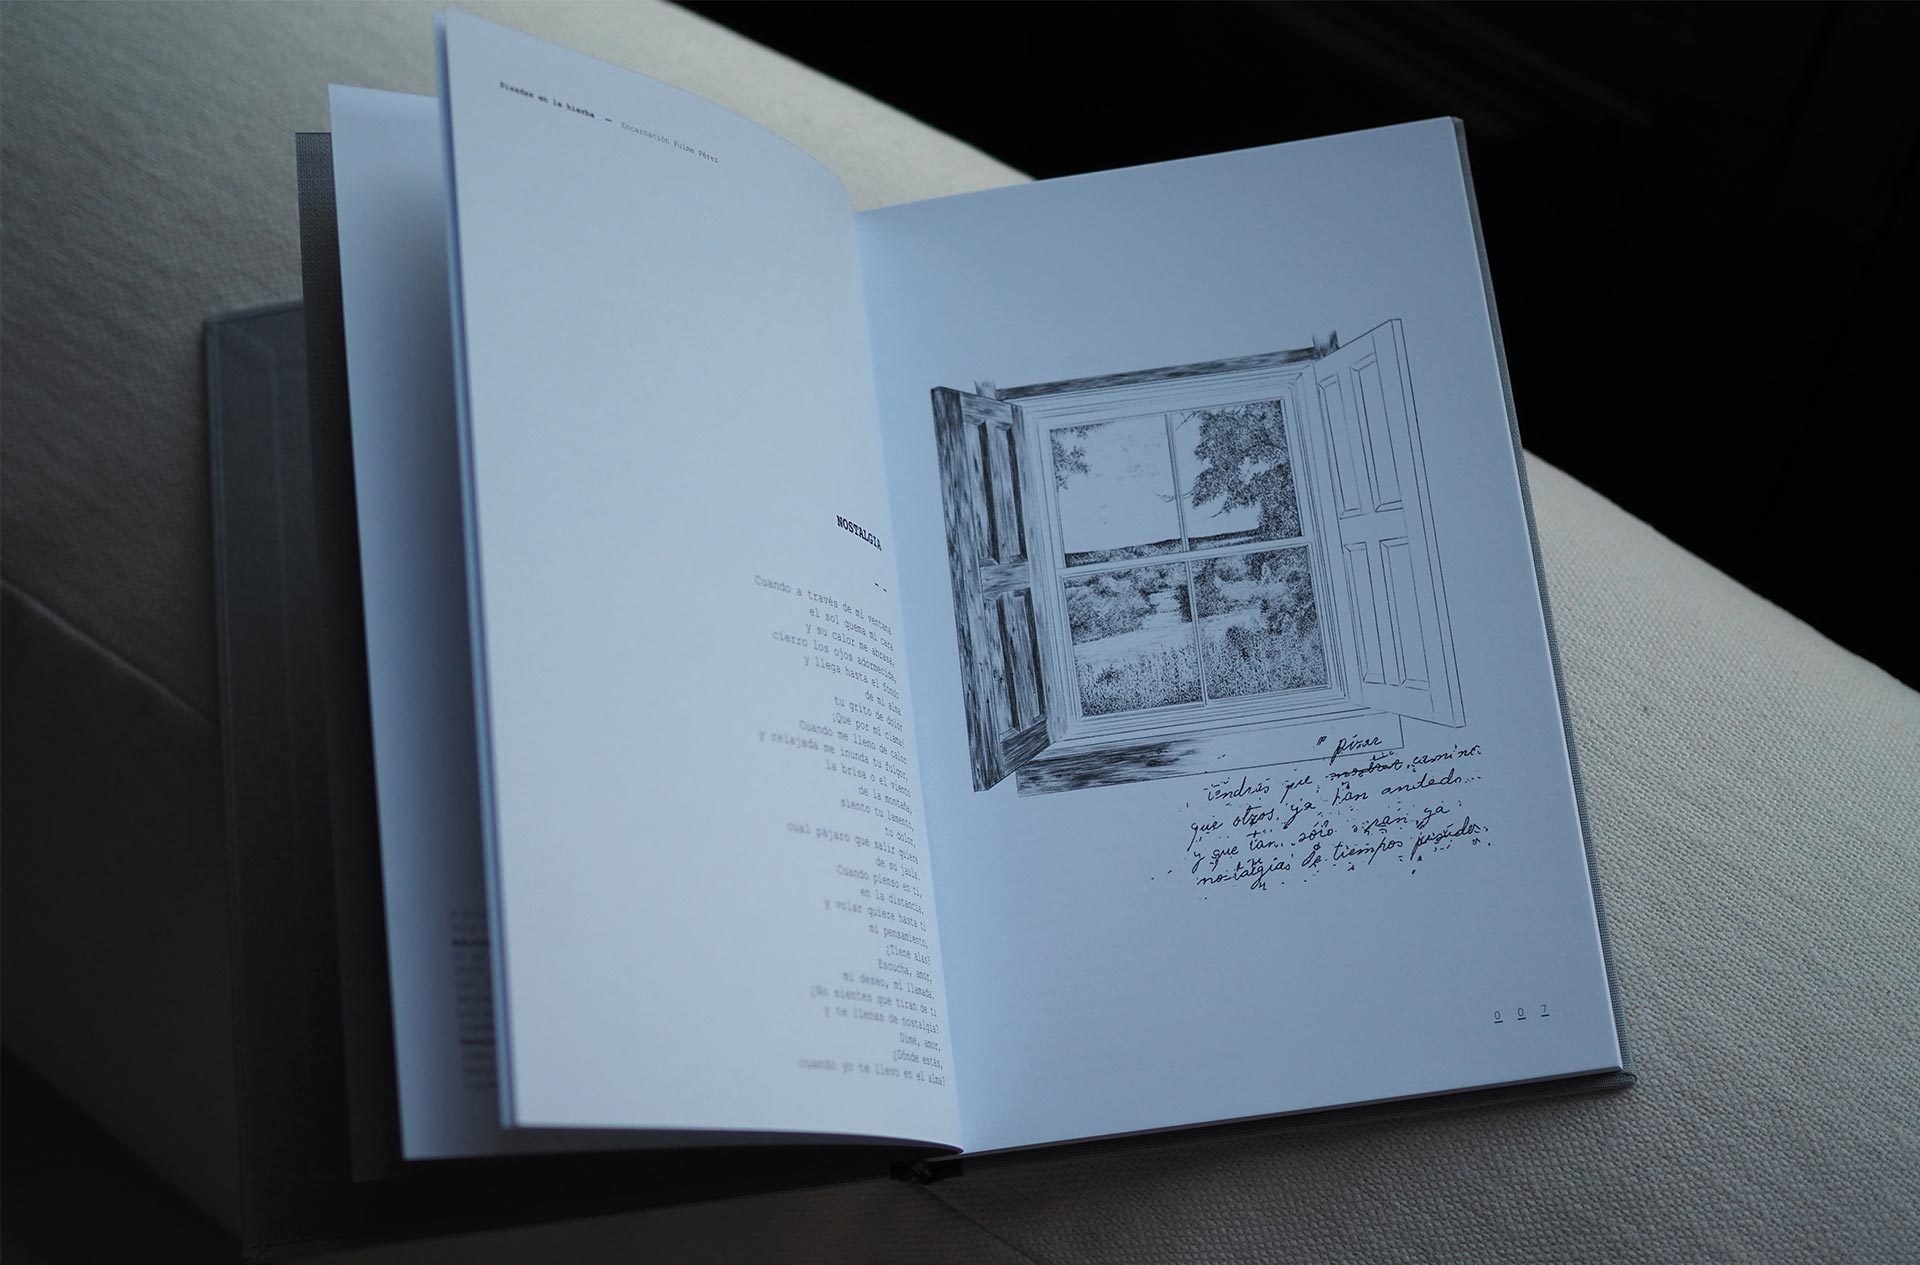 Pisadas en la hierba — Encarnación Puime Pérez
NOSTALGIA
--
Cuando a través de mi ventana
el sol quema mi cara
y su calor me abrasa,
cierro los ojos adormecida,
y llega hasta el fondo
de mi alma
tu grito de dolor
¡Que por mi clama!
Cuando me lleno de calor
y relajada me inunda tu fulgor,
la brisa o el viento
de la montaña,
siento tu lamento,
tu dolor,
cual pájaro que salir quiere
de su jaula.
Cuando pienso en ti,
en la distancia,
y volar quiere hasta ti
mi pensamiento,
¿Tiene alas?
Escucha, amor,
mi deseo, mi llamada.
¿No sientes que tiran de ti
y te llenas de nostalgia?
Dime, amor,
¿Dónde estás,
cuando yo te llevo en el alma?
pisar
tendrás que mostrar camino
que otros, ya han andado...
y que tan sólo serán ya
nostalgias de tiempos pasados.
007